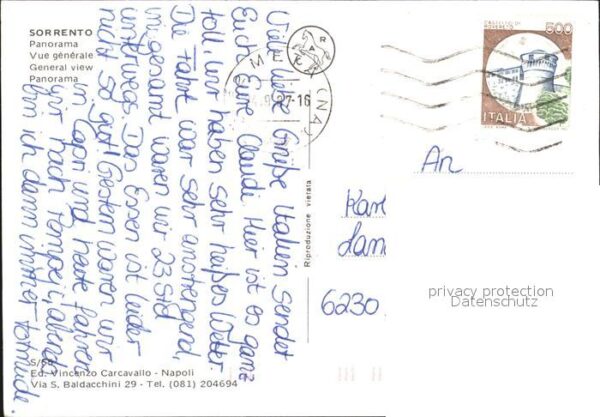 SORRENTO
Panorama
Vue générale
General view
Panorama
Viele liebe Grüße Italien sendet
Euch Eure Claudi. Hier ist es ganz
toll, wir haben sehr heißes Wetter.
Die Fahrt war sehr anstrengend,
insgesamt waren wir 23 Std
unterwegs. Das Essen ist leider
nicht so gut! Gestern waren wir
in Capri und heute fahren
wir nach Pompeji, abends
bin ich dann immer totmüde.
META (NA)
CASTELLO DI
ROVERETO
500
ITALIA
An
Kar
Lan
6230
privacy protection
Datenschutz
Riproduzione vietata
Ed. Vincenzo Carcavallo - Napoli
Via S. Baldacchini 29 - Tel. (081) 204694